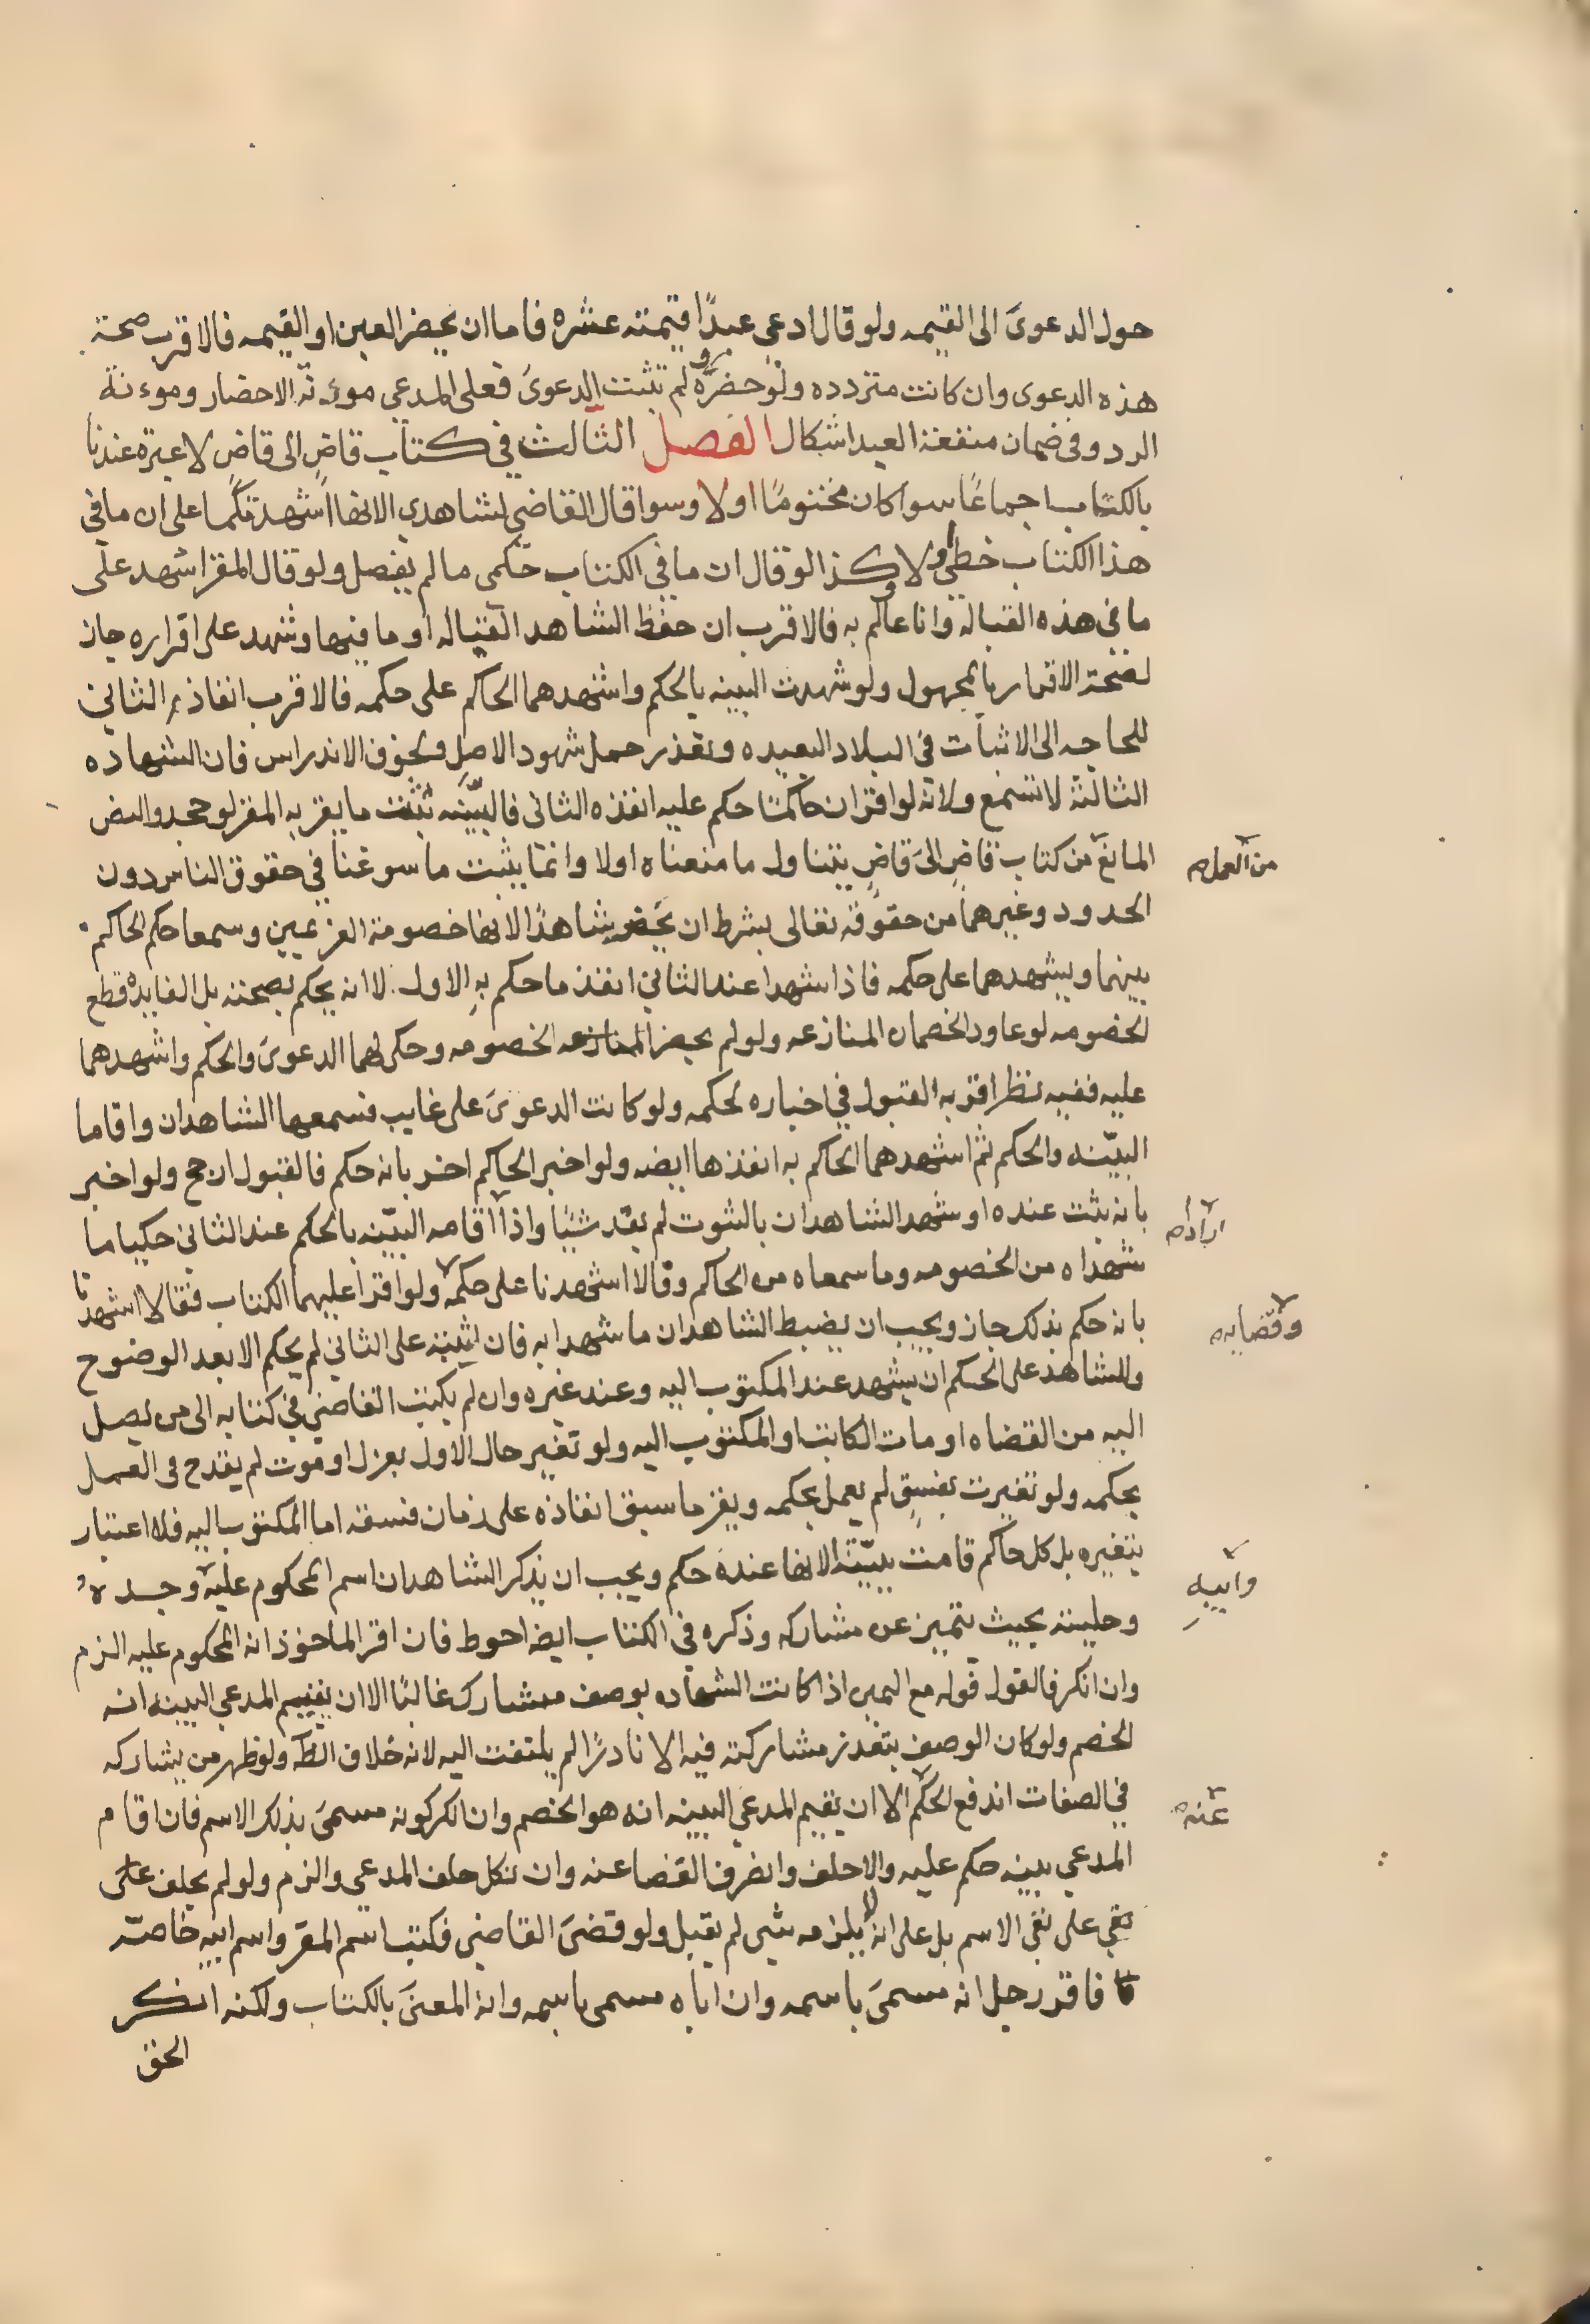 حول الدعوىَ الى القيمه ولو قال ادعى عبدًا قيمته عشره فاما ان يحضر العين او القيمه فالاقرب صحة
هذه الدعوى وان كانت مترددة ولو حضره ولم تثبت الدعوىَ فعلى المدعى موءنة الاحضار وموءنة
الرد وفى ضمان منفعة العبد اشكال الفصل الثالث في كتاب قاضٍ الى قاضٍ لا عبرة عندنا
بالكتاب اجماعًا سوا كان مختومًا او لا وسوا قال القاضي لشاهدي الانها اشهدتكما على ان ما في
هذا الكتاب خطى او لا وكذا لو قال ان ما في الكتاب حكمى ما لم يفصل ولو قال المقر اشهد على
ما في هذه القبالة وانا عالم به فالاقرب ان حفظ الشاهد القبالة او ما فيها وشهد على اقراره جاز
لصحة الاقرار بالمجهول ولو شهدت البينه بالحكم واشهدهما الحاكم على حكمه فالاقرب انفاذ الثاني
للحاجه الى الاثبات في البلاد البعيده وتعذر حمل شهود الاصل ولخوف الاندراس فان الشهاده
الثالثة لا تسمع ولانه لو اقر ان حاكمًا حكم عليه انفذه الثانى فالبيّنه تثبت ما يقر به المقر لو جحد والنص
المانع من كتاب قاضٍ الىَ قاضٍ يتناول ما منعناه اولا وانما يثبت ما سوغنا في حقوق الناس دون
من العمل صح
الحدود وغيرهما من حقوقه تعالى بشرط ان يحضر شاهدا الانها خصومة الغريمين وسمعا حكم الحاكم
بينهما ويشهدهما على حكمه فاذا شهدا عند الثاني انفذ ما حكم بهِ الاول لا انه يحكم بصحته بل الفايدة قطع
الخصومه لو عاود الخصمان المنازعه ولو لم يحضر المنازعه الخصومه وحكى لهما الدعوىَ والحكم واشهدهما
عليه ففيه نظر اقربه القبول في اخباره كحكمه ولو كانت الدعوىَ على غايب فسمعها الشاهدان واقاما
البيّنه والحكم ثم اشهدهما الحاكم به انفذها ايضه ولو اخبر الحاكم اخر بانه حكم فالقبول ارجح ولو اخبر
بانه ثبت عنده او شهد الشاهدان بالثبوت لم يفد شيئًا واذا اقامه البيّنه بالحكم عند الثانى حكيا ما
اراد صح
شهداه من الخصومه وما سمعاه من الحاكم وقالا اشهدنا على حكمه ولو اقرا عليهما الكتاب فقالا اشهدنا
وقضايه صح
بانه حكم بذلك جاز ويجب ان يضبط الشاهدان ما شهدا به فان اشتبه على الثاني لم يحكم الا بعد الوضوح
وللشاهد على الحكم ان يشهد عند المكتوب اليه وعند غيره وان لم يكتب القاضي في كتابه الى من يصل
اليه من القضاه او مات الكاتب او المكتوب اليه ولو تغير حال الاول بعزل او موت لم يقدح في العمل
بحكمه ولو تغيرت بفسقٍ لم يعمل بحكمه ويقر ما سبق انفاذه على زمان فسقه اما المكتوب اليه فلا اعتبار
بتغيره بل كل حاكم قامت ببيّنة الانها عنده حكم ويجب ان يذكر الشاهدان اسم المحكوم عليه وجده
وابيهِ
وحليته بحيث يتميز عن مشاركه وذكره في الكتاب ايضه احوط فان اقر الماخوذ انه المحكوم عليه الزم
وان انكر فالقول قوله مع اليمين اذا كانت الشهاده بوصف مشارك غالبًا الا ان يقيم المدعي البينه انه
الخصم ولو كان الوصف يتعذر مشاركته فيه الا نادرًا لم يلتفت اليه لانه خلاف الظّ ولو ظهر من يشاركه
في الصفات اندفع الحكم الا ان يقيم المدعي البينه انه هو الخصم وان انكر كونه مسمىَ بذلك الاسم فان اقام
عنه صح
المدعي بينه حكم عليه والا حلف وانصرف القضا عنه وان نكل حلف المدعي والزم ولو لم يحلف على
نفي على نفى الاسم بل على انه لا يلزمه شى لم يقبل ولو قضىَ القاضي فكتب اسم المقر واسم ابيه خاصة
فاقر رجل انه مسمىَ باسمه وان اباه مسمى باسمه وانه المعنىَ بالكتاب ولكنه انكر
الحق